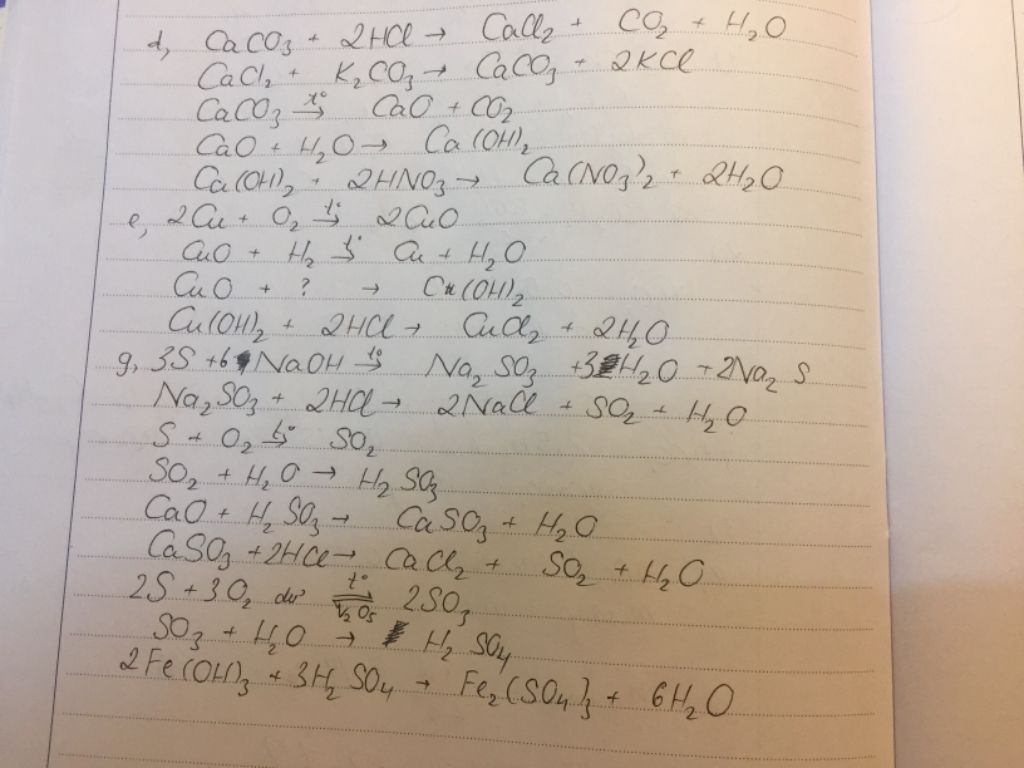 d, CaCO₃ + 2HCl → CaCl₂ + CO₂ + H₂O
CaCl₂ + K₂CO₃ → CaCO₃ + 2KCl
CaCO₃ t°→ CaO + CO₂
CaO + H₂O → Ca(OH)₂
Ca(OH)₂ + 2HNO₃ → Ca(NO₃)₂ + 2H₂O
e, 2Cu + O₂ t°→ 2CuO
CuO + H₂ t°→ Cu + H₂O
CuO + ? → Cu(OH)₂
Cu(OH)₂ + 2HCl → CuCl₂ + 2H₂O
g, 3S + 6NaOH t°→ Na₂SO₃ + 3H₂O + 2Na₂S
Na₂SO₃ + 2HCl → 2NaCl + SO₂ + H₂O
S + O₂ t°→ SO₂
SO₂ + H₂O → H₂SO₃
CaO + H₂SO₃ → CaSO₃ + H₂O
CaSO₃ + 2HCl → CaCl₂ + SO₂ + H₂O
2S + 3O₂ dư t°⇌V₂O₅ 2SO₃
SO₃ + H₂O → H₂SO₄
2Fe(OH)₃ + 3H₂SO₄ → Fe₂(SO₄)₃ + 6H₂O